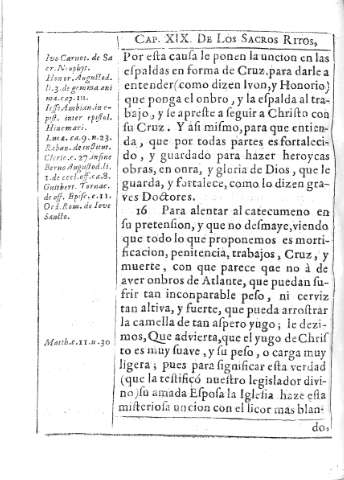 CAP. XIX. DE LOS SACROS RITOS,
Por esta causa le ponen la uncion en las
espaldas en forma de Cruz, para darle a
entender (como dizen Ivon, y Honorio)
que ponga el onbro, y la espalda al tra-
bajo, y se apreste a seguir a Christo con
su Cruz. Y asi mismo, para que entien-
da, que por todas partes es fortaleci-
do, y guardado para hazer heroycas
obras, en onra, y gloria de Dios, que le
guarda, y fortalece, como lo dizen gra-
ves Doctores.
16 Para alentar al catecumeno en
su pretension, y que no desmaye, viendo
que todo lo que proponemos es morti-
ficacion, penitencia, trabajos, Cruz, y
muerte, con que parece que no à de
aver onbros de Atlante, que puedan su-
frir tan inconparable peso, ni cerviz
tan altiva, y fuerte, que pueda arrostrar
la camella de tan aspero yugo; le dezi-
mos, Que advierta, que el yugo de Chris
to es muy suave, y su peso, o carga muy
ligera; pues para significar esta verdad
(que la testificó nuestro legislador divi-
no) su amada Esposa la Iglesia haze esta
misteriosa uncion con el licor mas blan-
do,
Ivo Carnot. de Sa
cr. Neophit.
Honor. Augustod.
li. 3. de gemma ani
ma. cap. 111.
Jesse Ambian. in e-
pist. inter epistol.
Hincmari.
Amal. ca. 9. n. 23.
Raban. de instruc.
Cleric. c. 27. in fine
Berno Augustod. li.
1. de eccl. off. ca. 8.
Guitbert. Tornac.
de off. Episc. c. 11.
Ord. Rom. de Iove
Sancto.
Matth. c. 11. n. 30